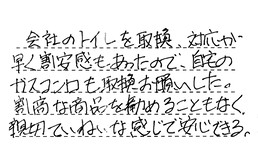 会社のトイレを取換、対応が
早く割安感もあったので、自宅の
ガスコンロも取換お願いした。
割高な商品を勧めることもなく
親切ていねいな感じで安心できる。